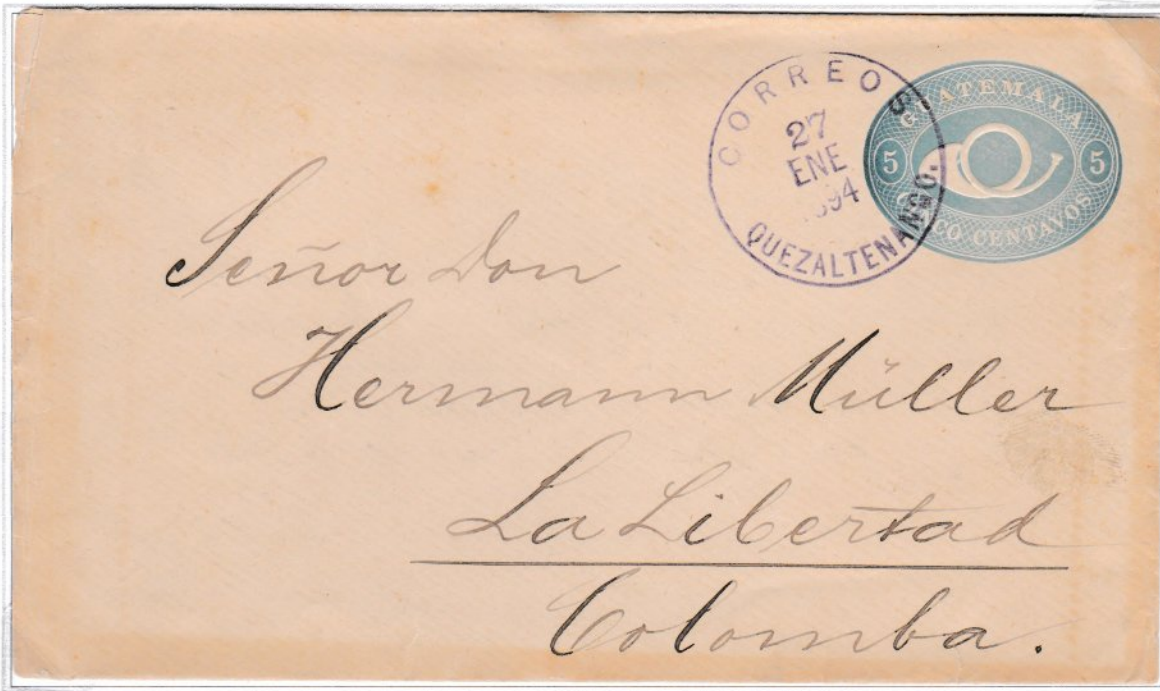 CORREOS
27
ENE
1894
QUEZALTENANGO.
GUATEMALA
5 5
CINCO CENTAVOS
Señor Don
Hermann Müller
La Libertad
Colomba.